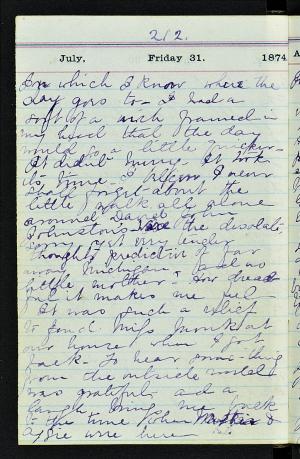 212.
July. Friday 31. 1874
in which I know where the
day goes to - I had a
sort of a wish framed in
my head that the day
would go a little quicker -
It didn't hurry. It took
its time. I never
shall forget about the
little walk all alone
around David John
Johnston's the desolate
my tender
thoughts of far
away Michigan, and no
little mother, how dread
ful it makes me feel
It was such a relief
to find Miss Monk at
our house when I got
back - To hear some-thing
from the outside world
was grateful, and a
laugh bring me back
to the time when &
Aggie were here